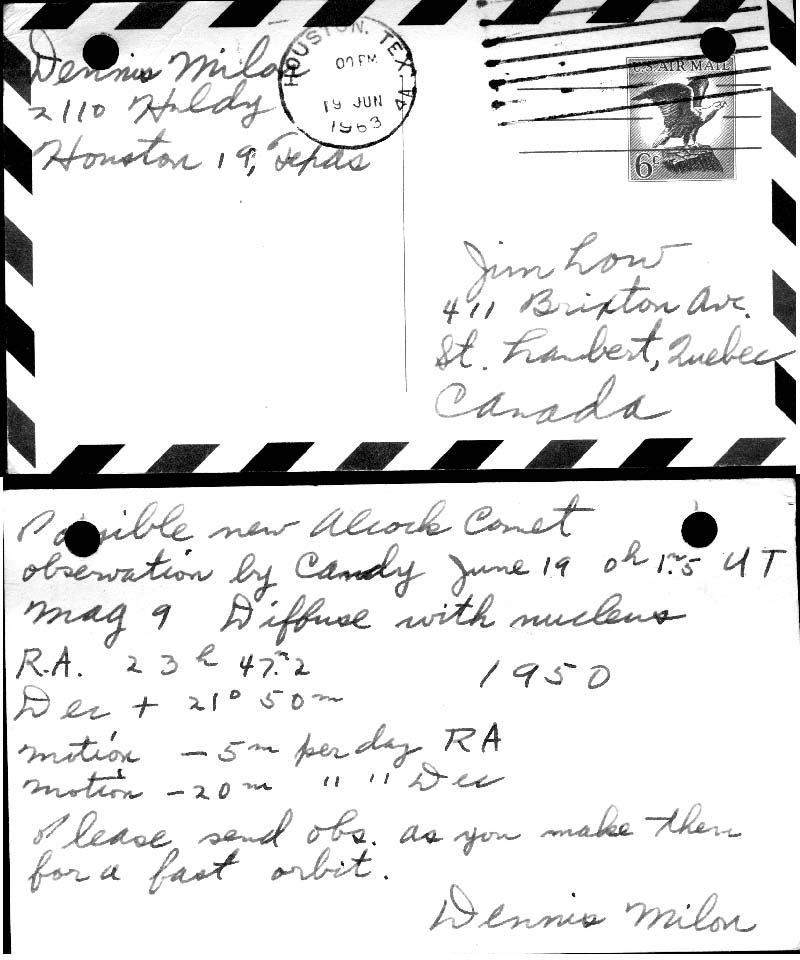 Dennis Milon
2110 Hildy
Houston 19, Texas
HOUSTON, TEX. 4A
07 PM
19 JUN
1963
U.S. AIR MAIL
6c
Jim Low
411 Brixton Ave.
St. Lambert, Quebec
Canada
Possible new Alcock Comet
observation by Candy June 19 0h 1m.5 UT
Mag 9 Diffuse with nucleus
R.A. 23h 47m.2 1950
Dec + 21° 50m
motion - 5m per day RA
motion - 20m " " Dec
Please send obs. as you make them
for a fast orbit.
Dennis Milon